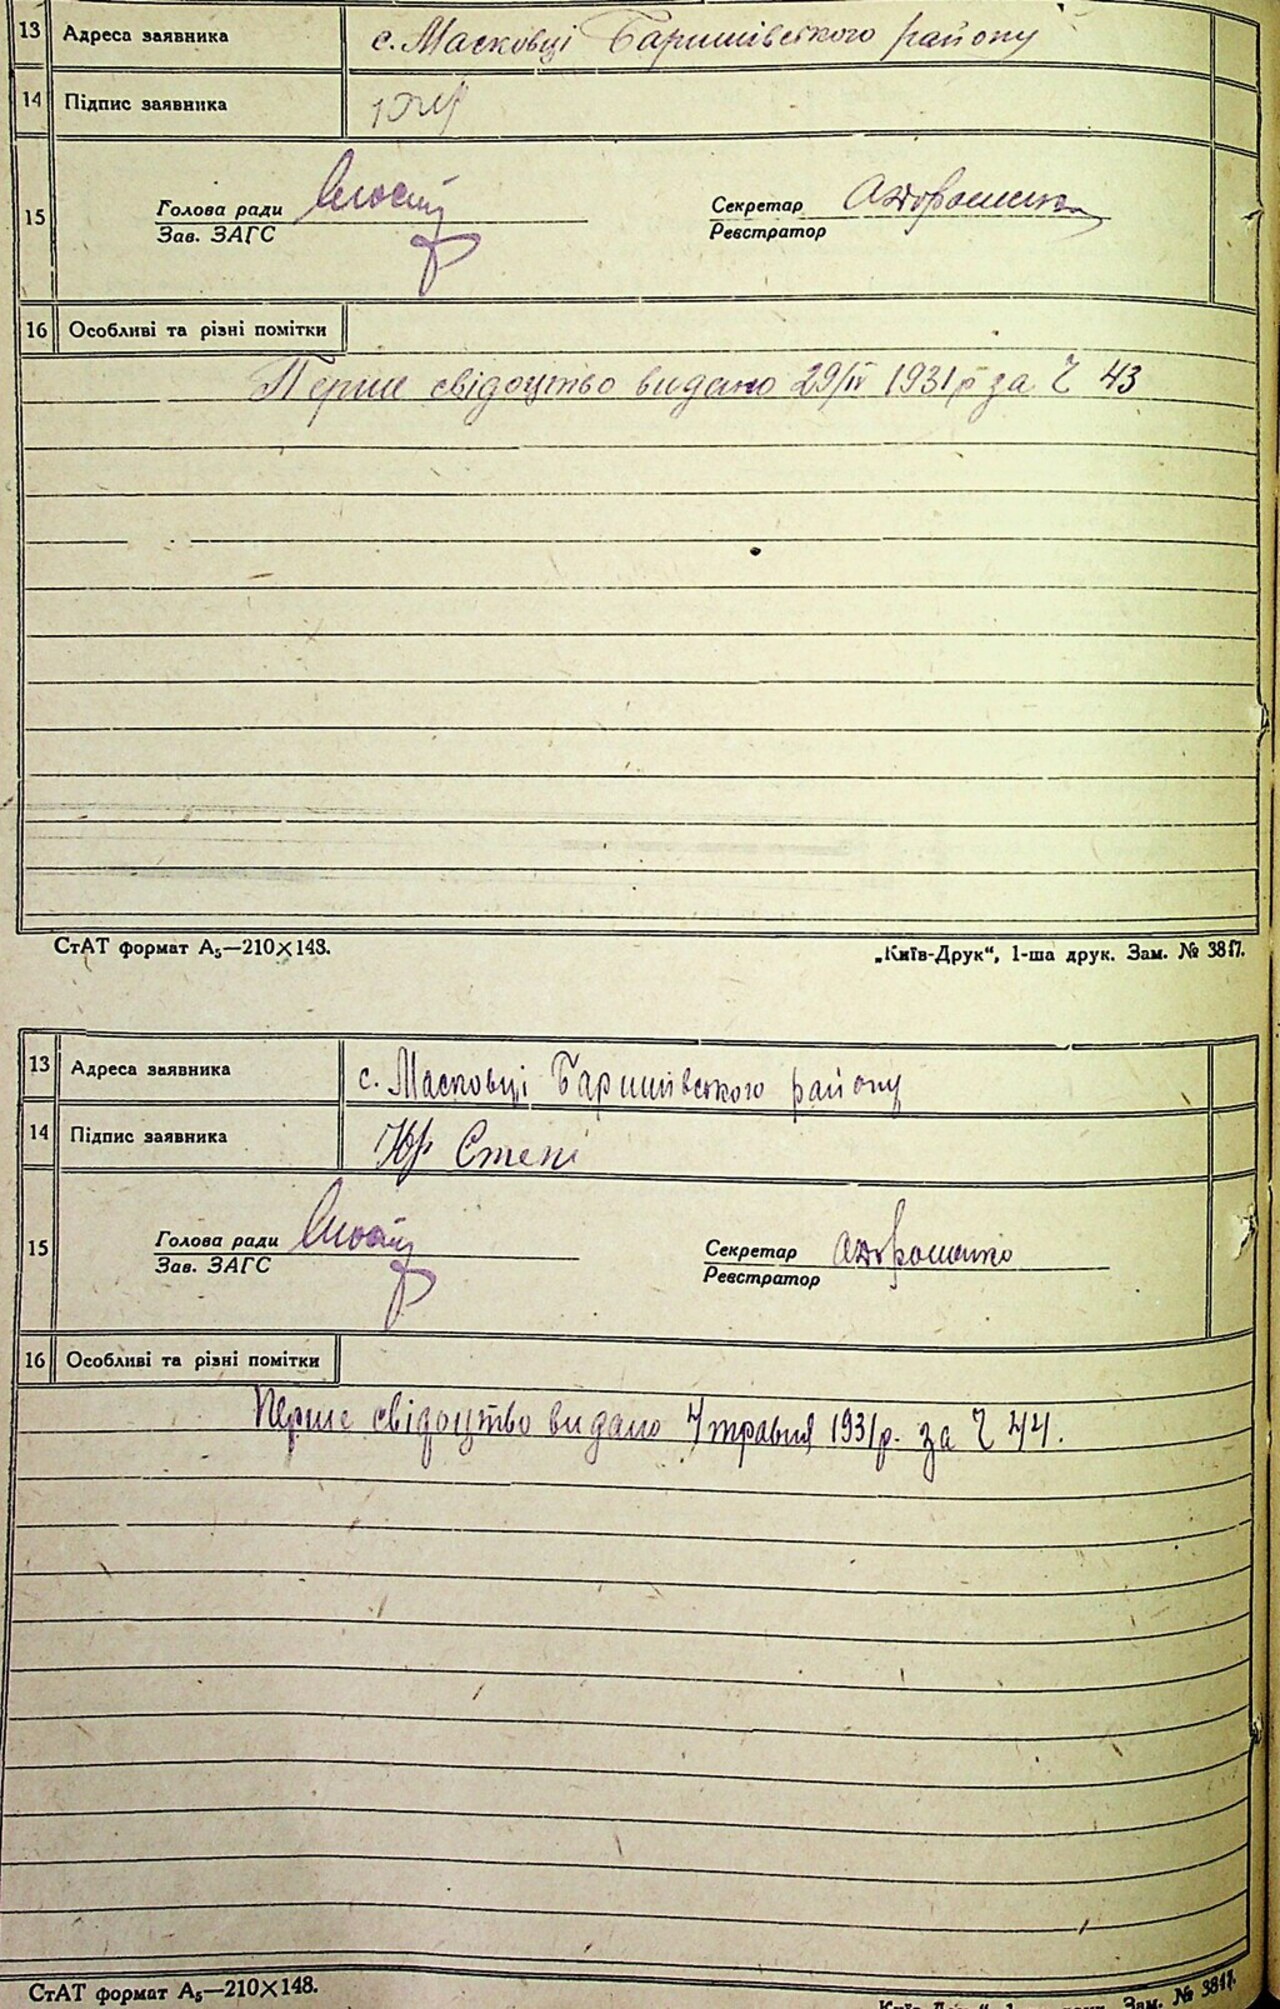 13 Адреса заявника с. Масковці Баришівського району
14 Підпис заявника
15 Голова ради Секретар АДорошенко
Зав. ЗАГС Реєстратор
16 Особливі та різні помітки
Перше свідоцтво видано 29/IV 1931 р за Ч 43
СтАТ формат А₅—210×148. „Київ-Друк“, 1-ша друк. Зам. № 3817.
13 Адреса заявника с. Масковці Баришівського району
14 Підпис заявника
15 Голова ради Секретар АДорошенко
Зав. ЗАГС Реєстратор
16 Особливі та різні помітки
Перше свідоцтво видано 4 травня 1931 р. за Ч 44.
СтАТ формат А₅—210×148. Зам. № 3817.